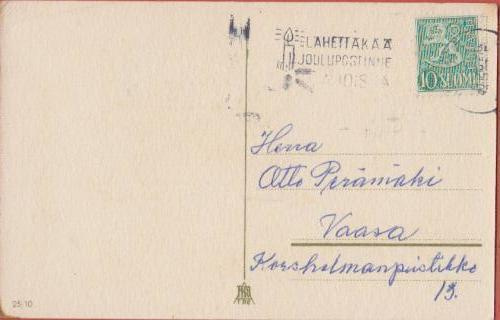 LÄHETTÄKÄÄ
JOULUPOSTINNE
AJOISSA
10 SUOMI
Herra
Otto Perämäki
Vaasa
Korsholmanpuistikko
13.
25/10